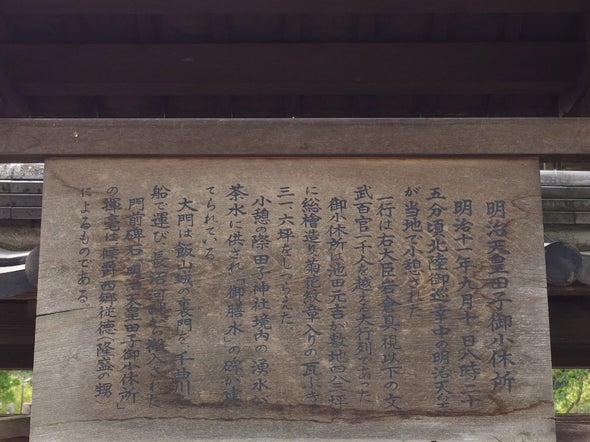 明治天皇田子御小休所
明治十一年九月十日八時二十
五分頃北陸御巡幸中の明治天皇
が当地で小憩された
一行は右大臣岩倉具視以下の文
武百官一千人を越える大行列であった
御小休所は池田元吉が敷地四八二坪
に総檜造り菊花紋章入りの瓦ぶき
三一、六坪をしつらえた
小憩の際田子神社境内の湧水が
茶水に供され「御膳水」の碑が建
てられている
大門は飯山城の裏門を千曲川
船で運び長沼河岸から搬入された
門前碑石「明治天皇田子御小休所」
の揮毫は侯爵西郷従徳(隆盛の甥)
によるものである